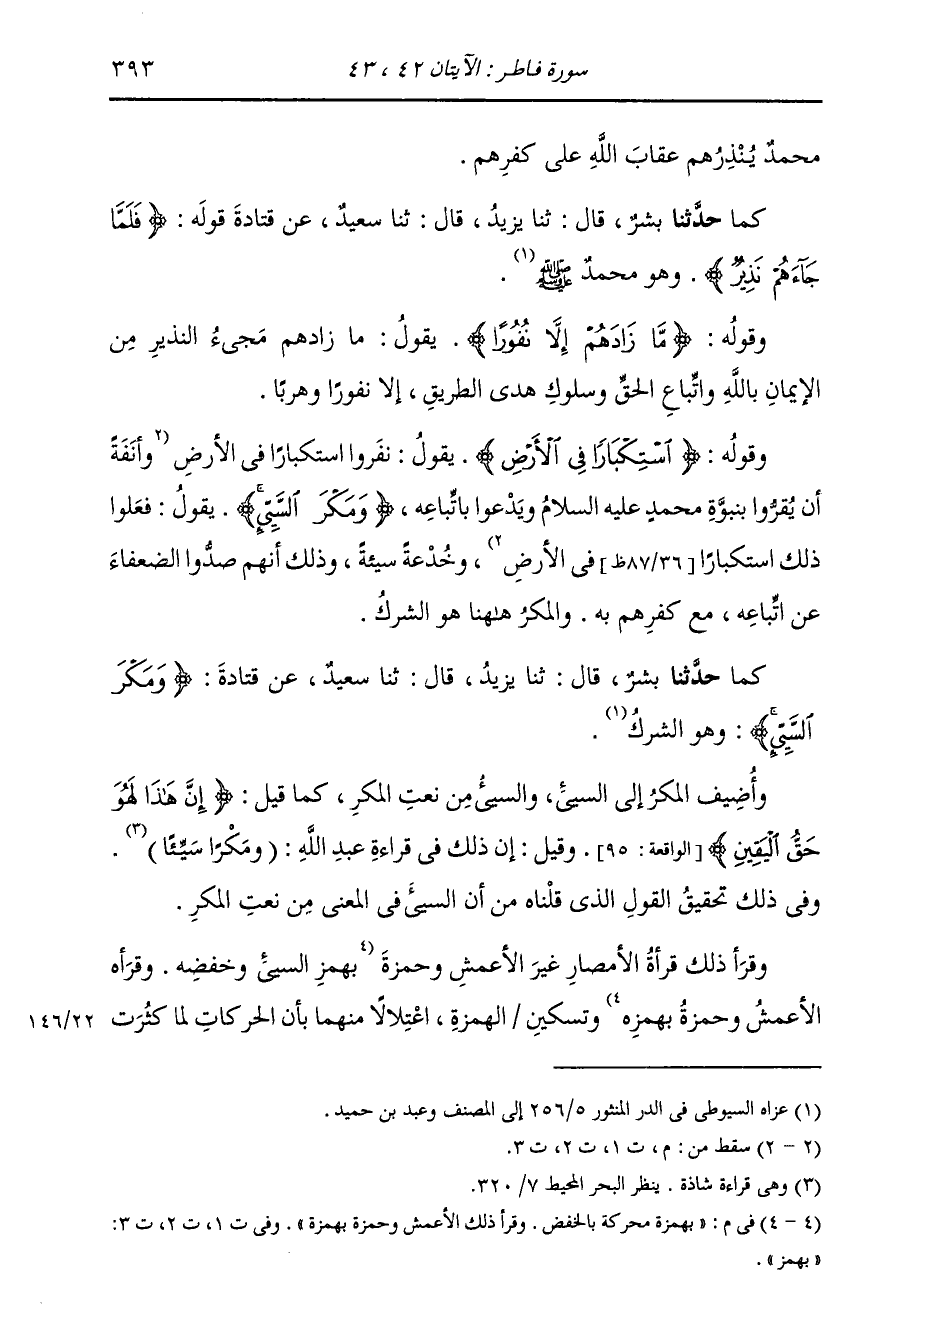 سورة فاطر : الآيتان ٤٢ ، ٤٣ ٣٩٣
محمدٌ يُنْذِرُهم عقابَ اللَّهِ على كفرِهم .
كما حدَّثنا بشرٌ ، قال : ثنا يزيدُ ، قال : ثنا سعيدٌ ، عن قتادةَ قولَه : ﴿ فَلَمَّا
جَآءَهُمْ نَذِيرٌ ﴾ . وهو محمدٌ ﷺ (١) .
وقولُه : ﴿ مَّا زَادَهُمْ إِلَّا نُفُورًا ﴾ . يقولُ : ما زادهم مَجىءُ النذيرِ مِن
الإيمانِ باللَّهِ واتِّباعِ الحقِّ وسلوكِ هدى الطريقِ ، إلا نفورًا وهربًا .
وقولُه : ﴿ ٱسْتِكْبَارًا فِى ٱلْأَرْضِ ﴾ . يقولُ : نفَروا استكبارًا فى الأرضِ (٢ وأنَفَةً
أن يُقرُّوا بنبوَّةِ محمدٍ عليه السلامُ ويَدْعوا باتِّباعِه ، ﴿ وَمَكْرَ ٱلسَّيِّئِ ﴾ . يقولُ : فعَلوا
ذلك استكبارًا [ ٨٧/٣٦ظ ] فى الأرضِ ٢) ، وخُدْعةً سيئةً ، وذلك أنهم صدُّوا الضعفاءَ
عن اتِّباعِه ، مع كفرِهم به . والمكرُ هلهنا هو الشركُ .
كما حدَّثنا بشرٌ ، قال : ثنا يزيدُ ، قال : ثنا سعيدٌ ، عن قتادةَ : ﴿ وَمَكْرَ
ٱلسَّيِّئِ ﴾ : وهو الشركُ (١) .
وأُضِيف المكرُ إلى السيئِ ، والسيئُ مِن نعتِ المكرِ ، كما قيل : ﴿ إِنَّ هَٰذَا لَهُوَ
حَقُّ ٱلْيَقِينِ ﴾ [ الواقعة : ٩٥] . وقيل : إن ذلك فى قراءةِ عبدِ اللَّهِ : ( ومَكْرًا سَيِّئًا ) (٣) .
وفى ذلك تحقيقُ القولِ الذى قلْناه من أن السيئَ فى المعنى مِن نعتِ المكرِ .
وقرَأ ذلك قرأةُ الأمصارِ غيرَ الأعمشِ وحمزةَ (٤ بهمزِ السيئِ وخفضِه . وقرَأه
الأعمشُ وحمزةُ بهمزِه ٤) وتسكينِ / الهمزةِ ، اعْتِلالًا منهما بأن الحركاتِ لما كثُرَت ١٤٦/٢٢
(١) عزاه السيوطى فى الدر المنثور ٢٥٦/٥ إلى المصنف وعبد بن حميد .
(٢ - ٢) سقط من : م ، ت ١، ت ٢، ت ٣.
(٣) وهى قراءة شاذة . ينظر البحر المحيط ٧/ ٣٢٠.
(٤ - ٤) فى م : « بهمزة محركة بالخفض . وقرأ ذلك الأعمش وحمزة بهمزة » . وفى ت ١، ت ٢، ت ٣:
« بهمز » .